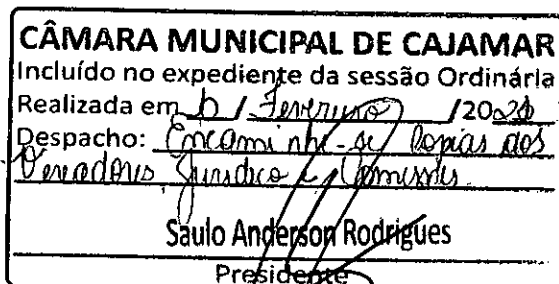 CÂMARA MUNICIPAL DE CAJAMAR
Incluído no expediente da sessão Ordinária
Realizada em / Fevereiro /20
Despacho: Encaminhe-se Copias aos
Vereadores Jurídico e Comissões
Saulo Anderson Rodrigues
Presidente